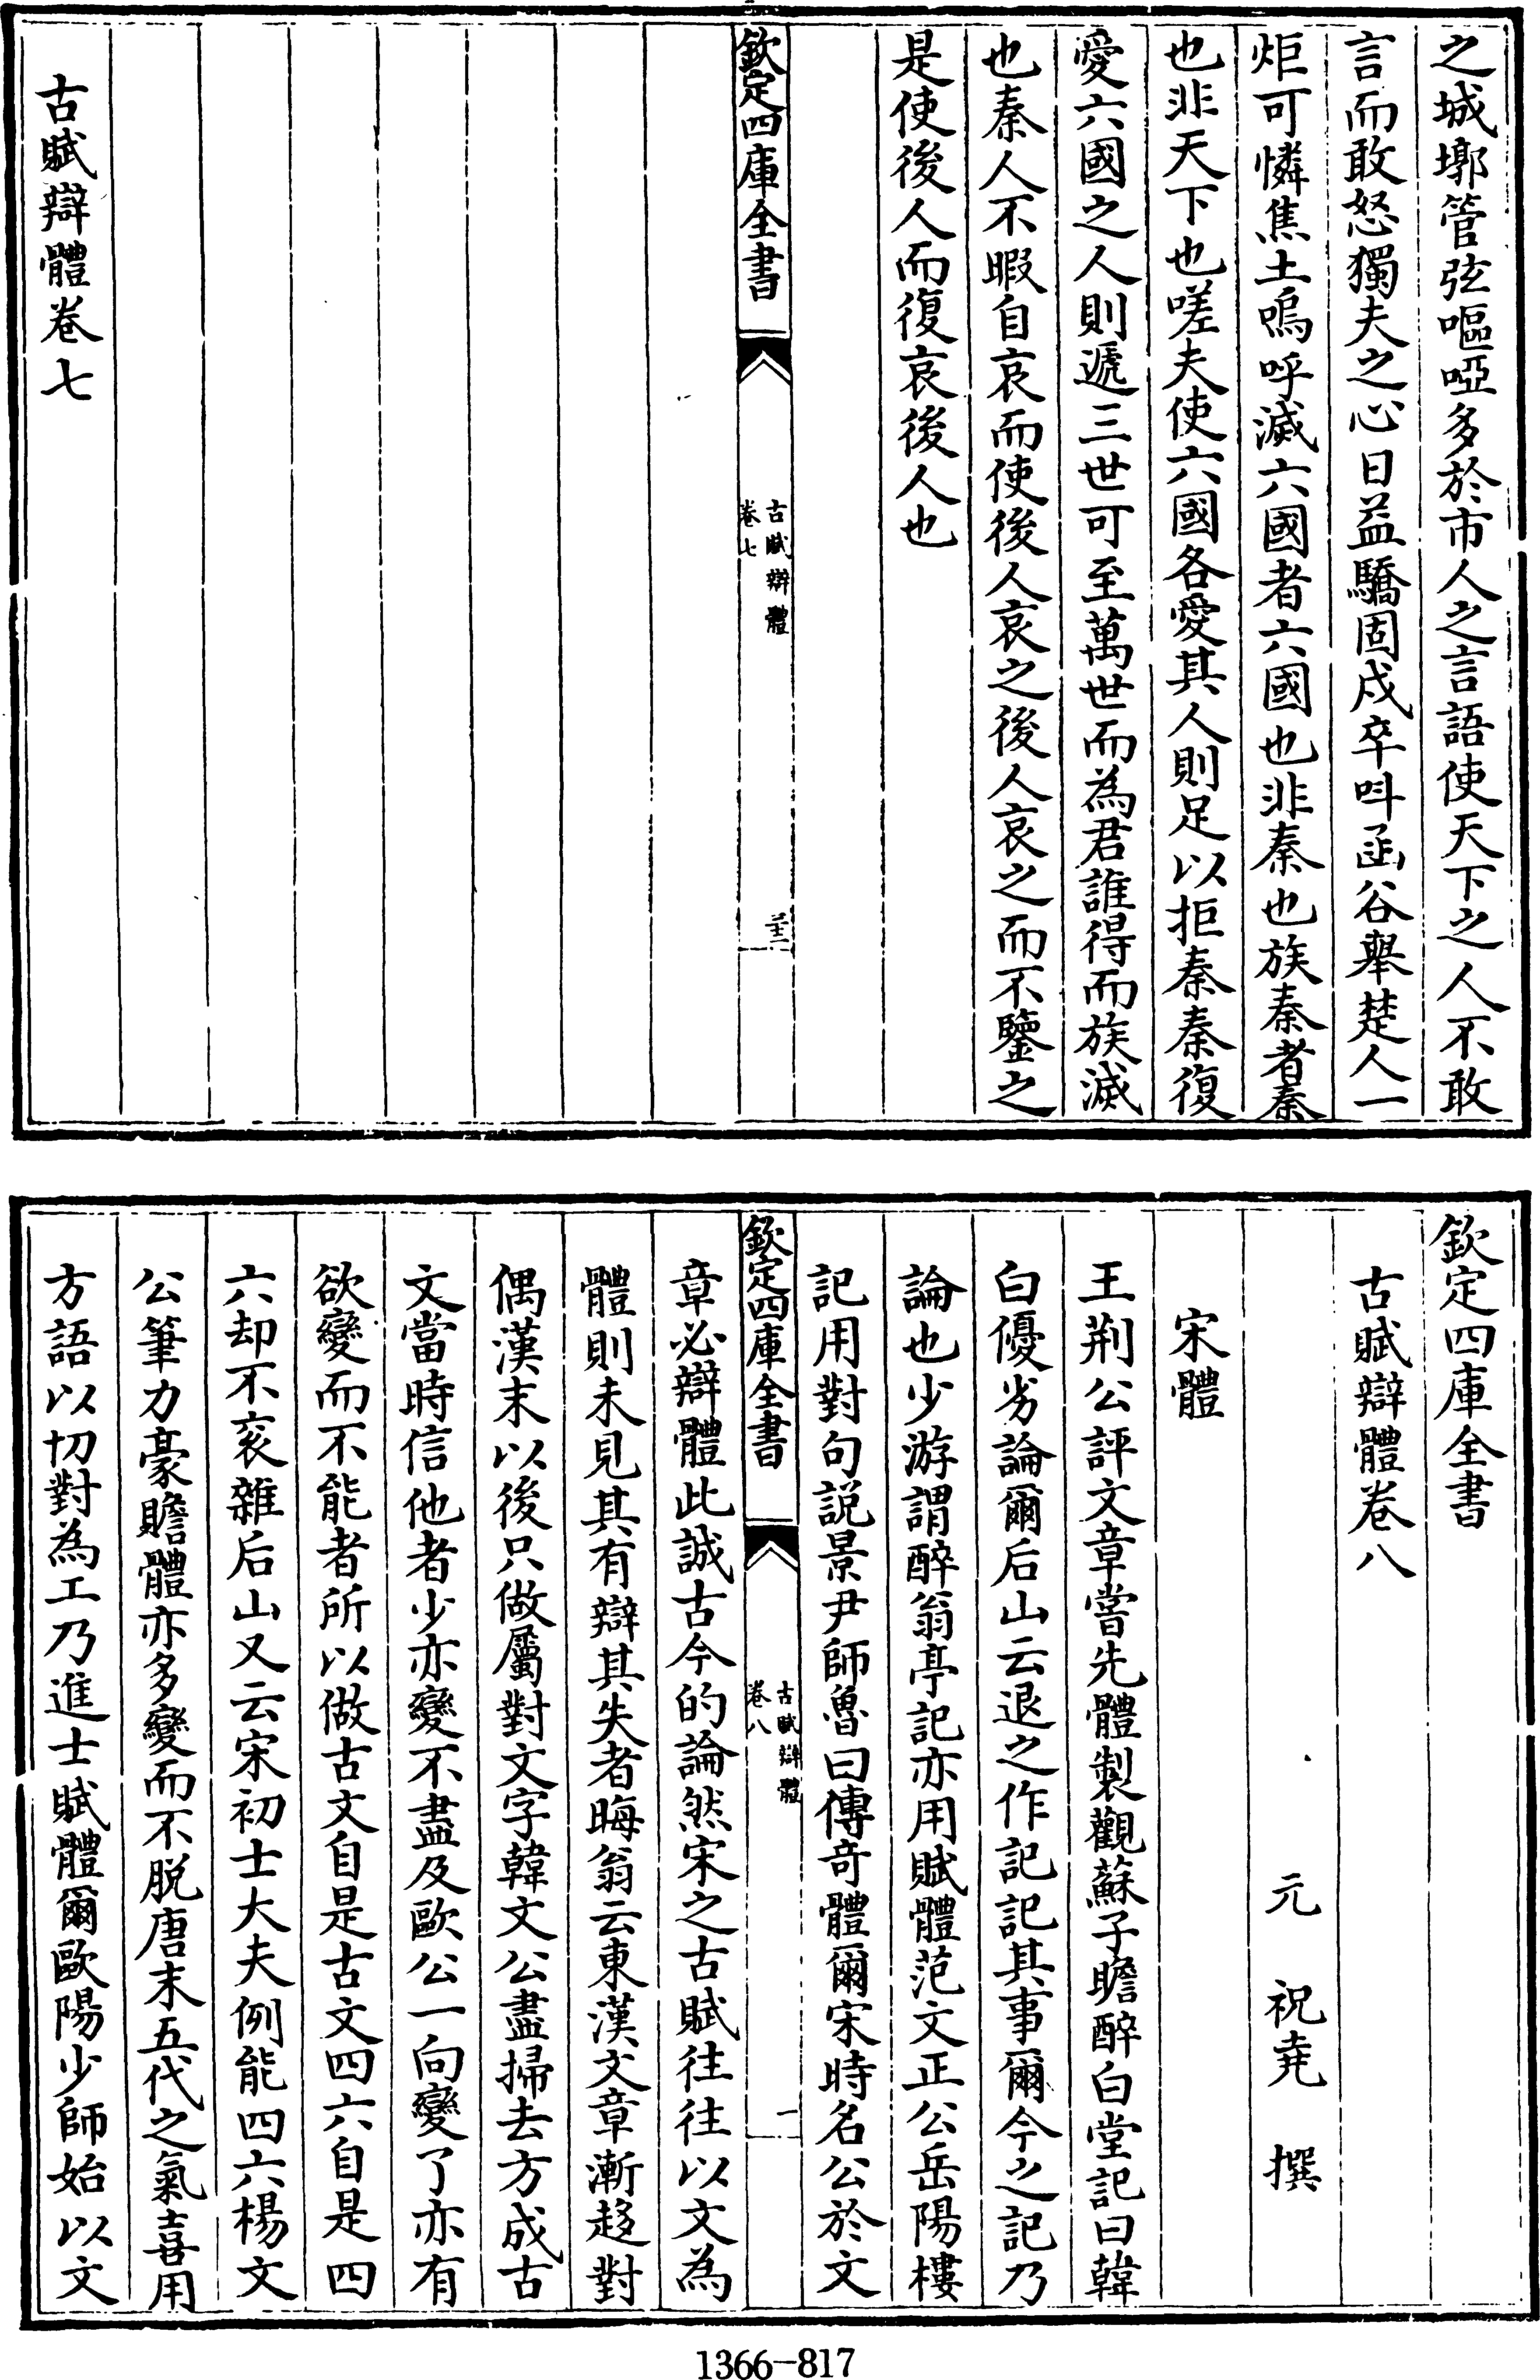 之城墎管弦嘔啞多於市人之言語使天下之人不敢
言而敢怒獨夫之心日益驕固戍卒呌函谷舉楚人一
炬可憐焦土嗚呼滅六國者六國也非秦也族秦者秦
也非天下也嗟夫使六國各愛其人則足以拒秦秦復
愛六國之人則遞三世可至萬世而為君誰得而族滅
也秦人不暇自哀而使後人哀之後人哀之而不鑒之
是使後人而復哀後人也
欽定四庫全書
古賦辯體
卷七
古賦辯體卷七
欽定四庫全書
古賦辯體卷八
元 祝堯 撰
宋體
王荆公評文章嘗先體製觀蘇子瞻醉白堂記曰韓
白優劣論爾后山云退之作記記其事爾今之記乃
論也少游謂醉翁亭記亦用賦體范文正公岳陽樓
記用對句説景尹師魯曰傳竒體爾宋時名公於文
欽定四庫全書
古賦辯體
卷八
一
章必辯體此誠古今的論然宋之古賦往往以文為
體則未見其有辯其失者晦翁云東漢文章漸趍對
偶漢末以後只做屬對文字韓文公盡掃去方成古
文當時信他者少亦變不盡及歐公一向變了亦有
欲變而不能者所以做古文自是古文四六自是四
六却不衮雜后山又云宋初士大夫例能四六楊文
公筆力豪贍體亦多變而不脱唐末五代之氣喜用
方語以切對為工乃進士賦體爾歐陽少師始以文
1366-817